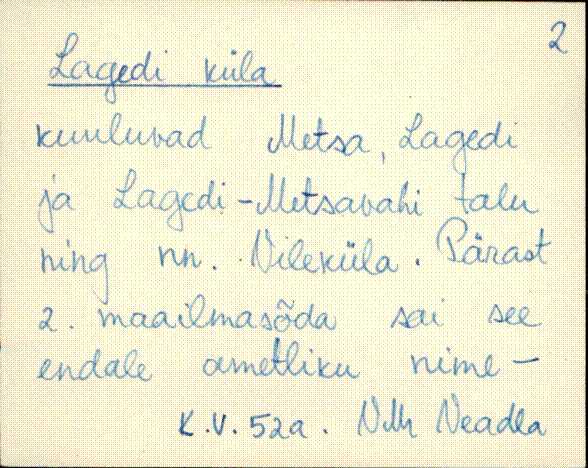 2
Lagedi küla
kuuluvad Metsa, Lagedi
ja Lagedi-Metsavahi talu
ning nn. Vileküla. Pärast
2. maailmasõda sai see
endale ametliku nime -
K.V. 52a. Neadla